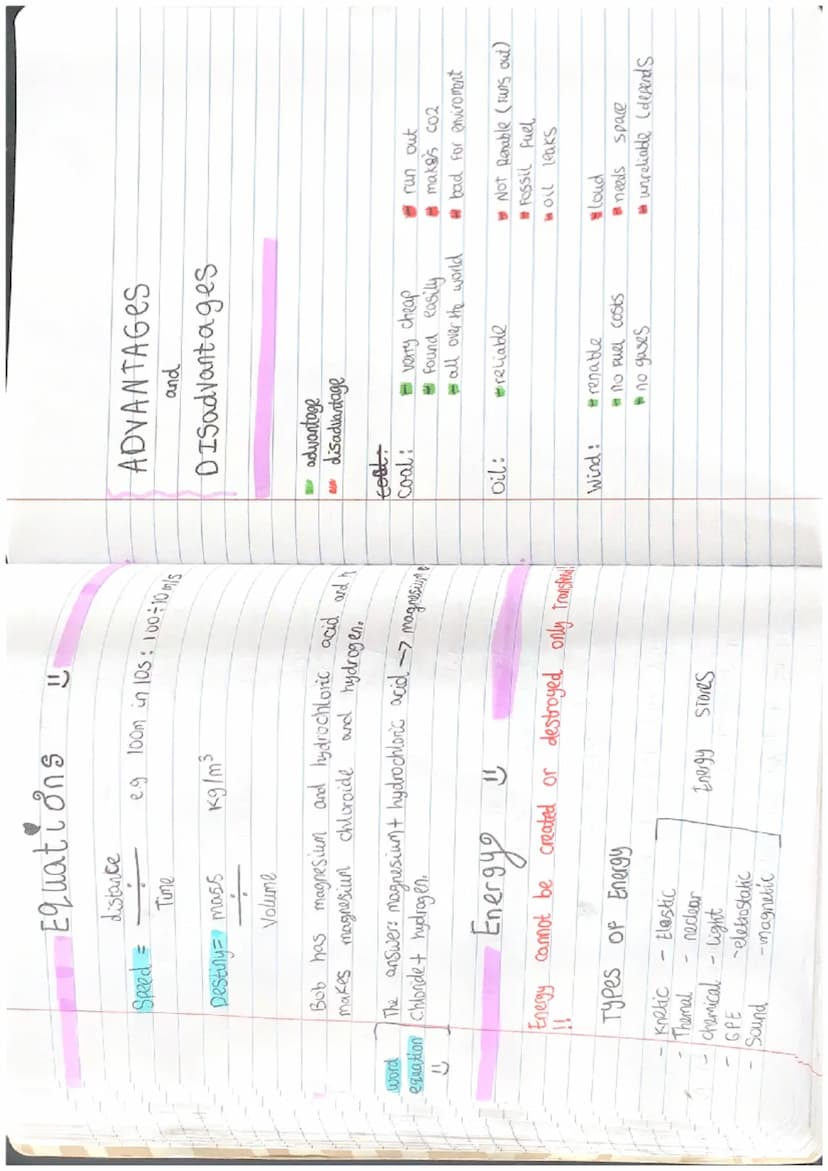 Equations
Speed = distance
÷
Time
e.g 100m in 10s: 100÷10m/s
Destiny= mass
÷
Volume
kg/m³
Bob has magnesium and hydrochloric acid and
makes magnesium chloroide and hydrogen.
word
equation
The answer: magnesium + hydrochloric acid → magnesium
Chloride + hydrogen.
Energy
Energy cannot be created or destroyed only Transfer!
!!
TYPES OF Energy
- Knetic - Elastic
- Thermal - neclear
- chemical - light
- GPE - eletrostatic
- Sound - magnetic
Energy stores
ADVANTAGES
and
DISadvantages
advantage
disadvantage
coal:
Coal:
verry cheap
found easily
all over the world
run out
makes co2
bad for enviroment
Oil:
reliable
Not Renable (runs out)
Fossil Fuel
oil leaks
Wind:
renable
no fuel costs
no gases
loud
needs space
unreliable (depends